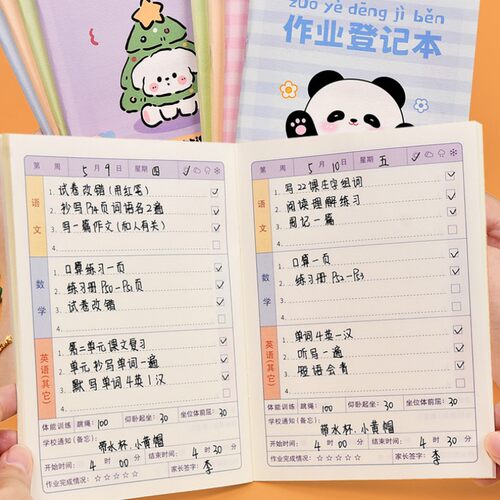 zuò yè dēng jì běn
作业登记本
第 周 5月9日 星期四
语文
1. 试卷改错(用红笔)
2. 抄写P14页词语各2遍
3. 写一篇作文(和人有关)
4.
数学
1. 口算练习一页
2. 练习册P50-P51页
3. 试卷改错
4.
英语(其它)
1. 第二单元课文复习
2. 单元抄写单词一遍
3. 默写单词4英1汉
4.
体能训练 跳绳: 100 仰卧起坐: 30 坐位体前屈: 30
学校通知(备忘):
带水杯.小黄帽
开始时间: 4时00分 结束时间: 4时30分
作业完成情况: ☆☆☆☆☆ 家长签字: 李
第 周 5月10日 星期五
语文
1. 写22课生字组词
2. 阅读理解练习
3. 周记一篇
4.
数学
1. 口算一页
2. 练习册P52-P53
3.
4.
英语(其它)
1. 单词4英一汉
2. 听写一遍
3. 短语会背
4.
体能训练 跳绳: 100 仰卧起坐: 30 坐位体前屈: 30
学校通知(备忘):
带水杯.小黄帽
开始时间: 4时00分 结束时间: 4时30分
作业完成情况: ☆☆☆☆☆ 家长签字: 李